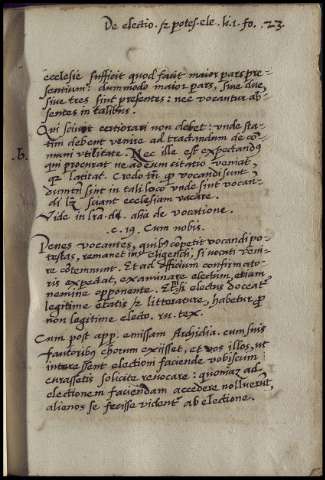 De electio. et potes. ele. li. i. fo. 23.
ecclesie sufficit quod faciat maior pars pre-
sentium: dummodo maior pars, siue duo,
siue tres sint presentes: nec vocantur ab-
sentes in talibus.
Qui sciunt certiorari non debet: unde sta-
tim debent venire ad tractandum de co-
.b. muni utilitate. Nec ille est expectandus
qui procurat ne ad eum citatio veniat,
latitat. Credo tamen quod vocandi sunt,
dummodo sint in tali loco unde sint vocan-
di licet sciant ecclesiam vacare.
Vide in lra. alia de vocatione.
.c. 19. Cum nobis.
Penes vocantes, quibus competit vocandi po-
testas, remanet ius eligendi, si vocati veni-
re contemnunt. Et ad officium confirmato-
ris expedat, examinare electum, etiam
nemine opponente. Et nisi electus doceat
legitime etatis et litterature, habetur pro
non legitime electo. ru. tex.
Cum post app. emissam Archidia. cum suis
fautoribus chorum exiisset, et vos illos, ut
interessent electioni faciende vobiscum
curassetis solicite reuocare: quoniam ad
electionem faciendam accedere noluerunt,
alienos se fecisse videntur ab electione.